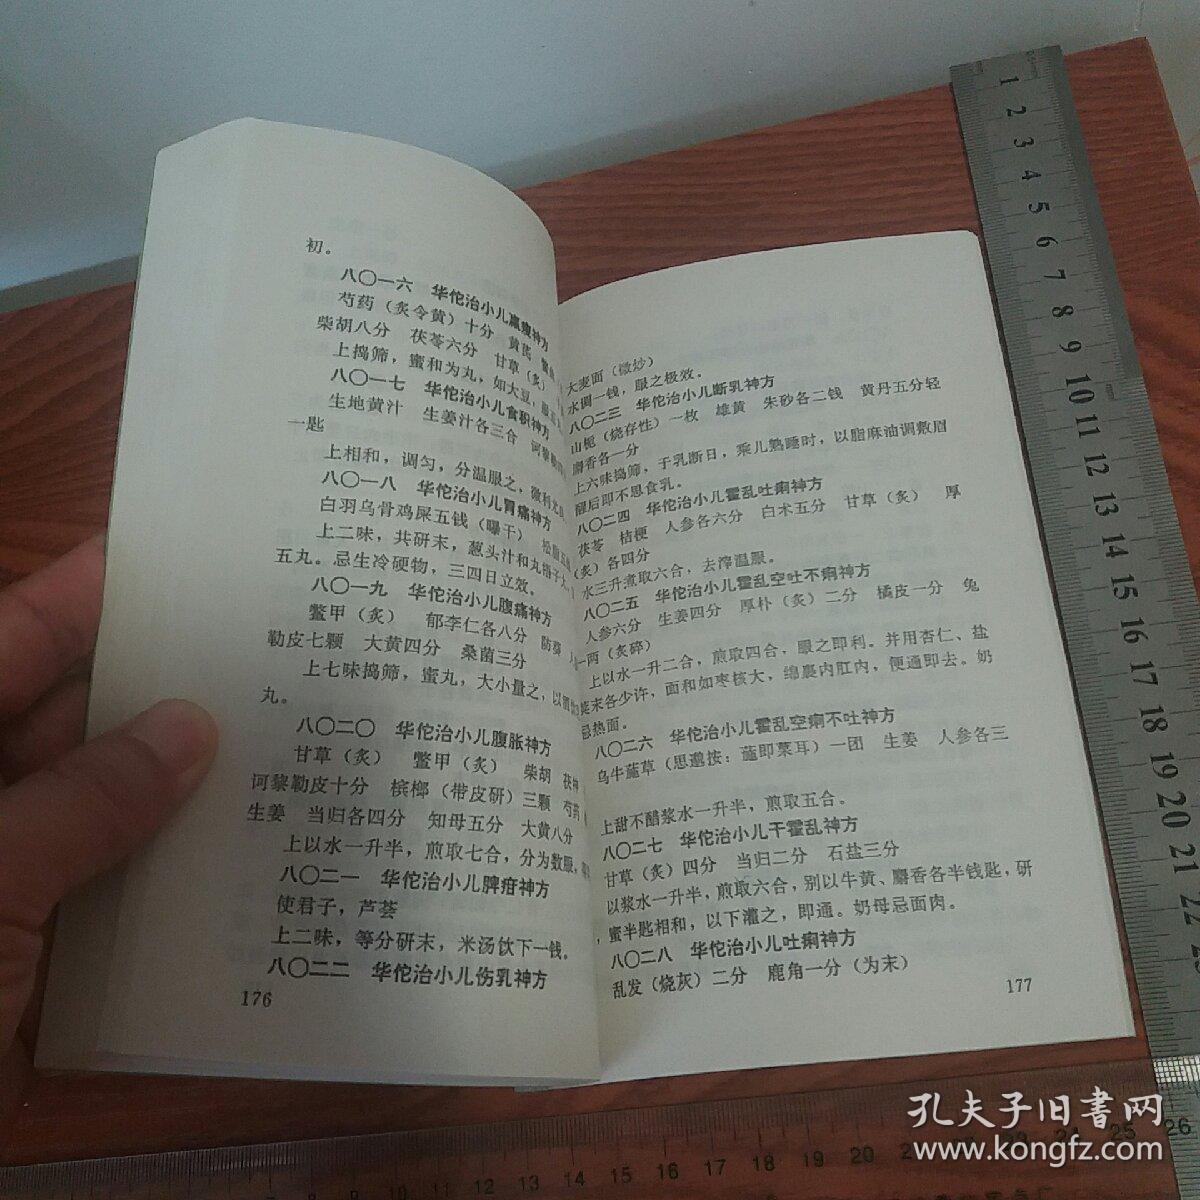 初。
八〇一六 华佗治小儿羸瘦神方
芍药（炙令黄）十分 黄芪
柴胡八分 茯苓六分 甘草（炙）
上捣筛，蜜和为丸，如大豆，服
八〇一七 华佗治小儿食积神方
生地黄汁 生姜汁各三合 诃黎
一匙
上相和，调匀，分温服之，微利尤
八〇一八 华佗治小儿胃痛神方
白羽乌骨鸡屎五钱（曝干） 松脂五
上二味，共研末，葱头汁和丸梧子大，
五丸。忌生冷硬物，三四日立效。
八〇一九 华佗治小儿腹痛神方
鳖甲（炙） 郁李仁各八分 防葵
勒皮七颗 大黄四分 桑菌三分
上七味捣筛，蜜丸，大小量之，以酒
丸。
八〇二〇 华佗治小儿腹胀神方
甘草（炙） 鳖甲（炙） 柴胡 茯神
诃黎勒皮十分 槟榔（带皮研）三颗 芍药
生姜 当归各四分 知母五分 大黄八分
上以水一升半，煎取七合，分为数服，
八〇二一 华佗治小儿脾疳神方
使君子，芦荟
上二味，等分研末，米汤饮下一钱。
八〇二二 华佗治小儿伤乳神方
176
大麦面（微炒）
水调一钱，服之极效。
八〇二三 华佗治小儿断乳神方
山栀（烧存性）一枚 雄黄 朱砂各二钱 黄丹五分轻
麝香各一分
上六味捣筛，于乳断日，乘儿熟睡时，以脂麻油调敷眉
醒后即不思食乳。
八〇二四 华佗治小儿霍乱吐痢神方
茯苓 桔梗 人参各六分 白术五分 甘草（炙） 厚
（炙）各四分
水三升煮取六合，去滓温服。
八〇二五 华佗治小儿霍乱空吐不痢神方
人参六分 生姜四分 厚朴（炙）二分 橘皮一分 兔
一两（炙碎）
上以水一升二合，煎取四合，服之即利。并用杏仁、盐
荚末各少许，面和如枣核大，绵裹内肛内，便通即去。奶
忌热面。
八〇二六 华佗治小儿霍乱空痢不吐神方
乌牛葹草（思邈按：葹即菜耳）一团 生姜 人参各三
上甜不醋浆水一升半，煎取五合。
八〇二七 华佗治小儿干霍乱神方
甘草（炙）四分 当归二分 石盐三分
以浆水一升半，煎取六合，别以牛黄、麝香各半钱匙，研
，蜜半匙相和，以下灌之，即通。奶母忌面肉。
八〇二八 华佗治小儿吐痢神方
乱发（烧灰）二分 鹿角一分（为末）
177
1 2 3 4 5 6 7 8 9 10 11 12 13 14 15 16 17 18 19 20 21 22
10 11 12 13 14 15 16 17 18 19 20 21 22 23 24 25 26
孔夫子旧书网
www.kongfz.com